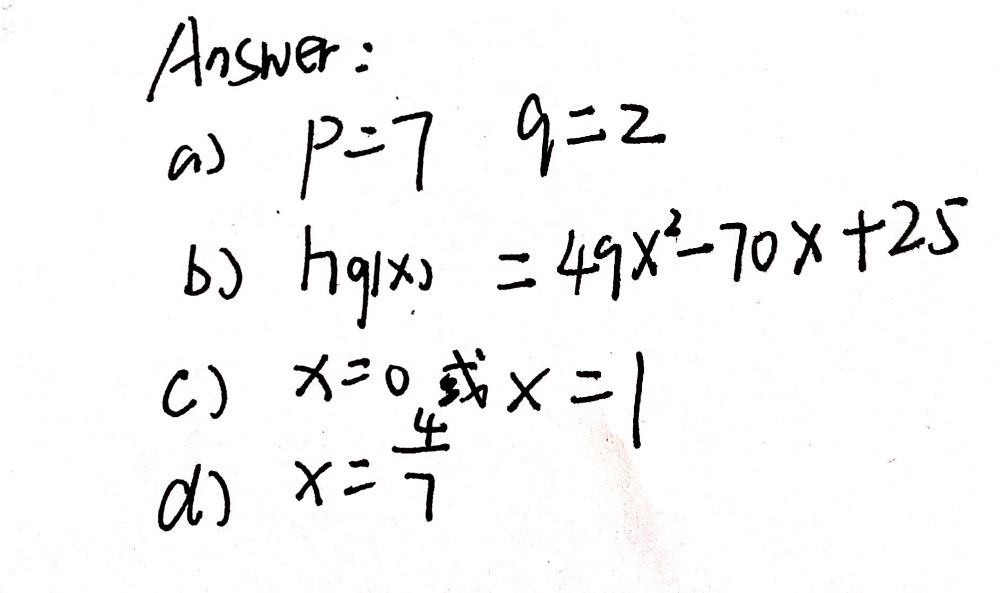 Answer:
a) P=7 q=2
b) hg(x) = 49x²-70x+25
c) x=0 或 x=1
d) x=4/7